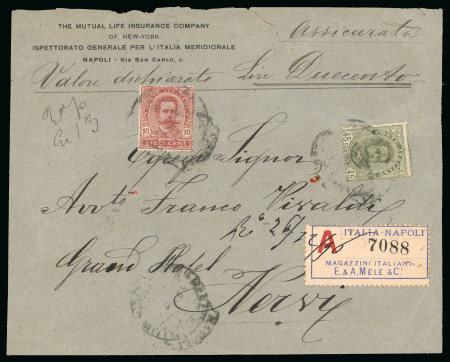 THE MUTUAL LIFE INSURANCE COMPANY
OF NEW-YORK
ISPETTORATO GENERALE PER L'ITALIA MERIDIONALE
NAPOLI - VIA SAN CARLO,
Assicurata
Valore dichiarato Lire Duecento
10
45
45
Egregio Signor
Avv.to Franco Vivaldi
Grand Hotel
Nervi
A ITALIA-NAPOLI
7088
MAGAZZINI ITALIANI
E. & A. MELE & C.